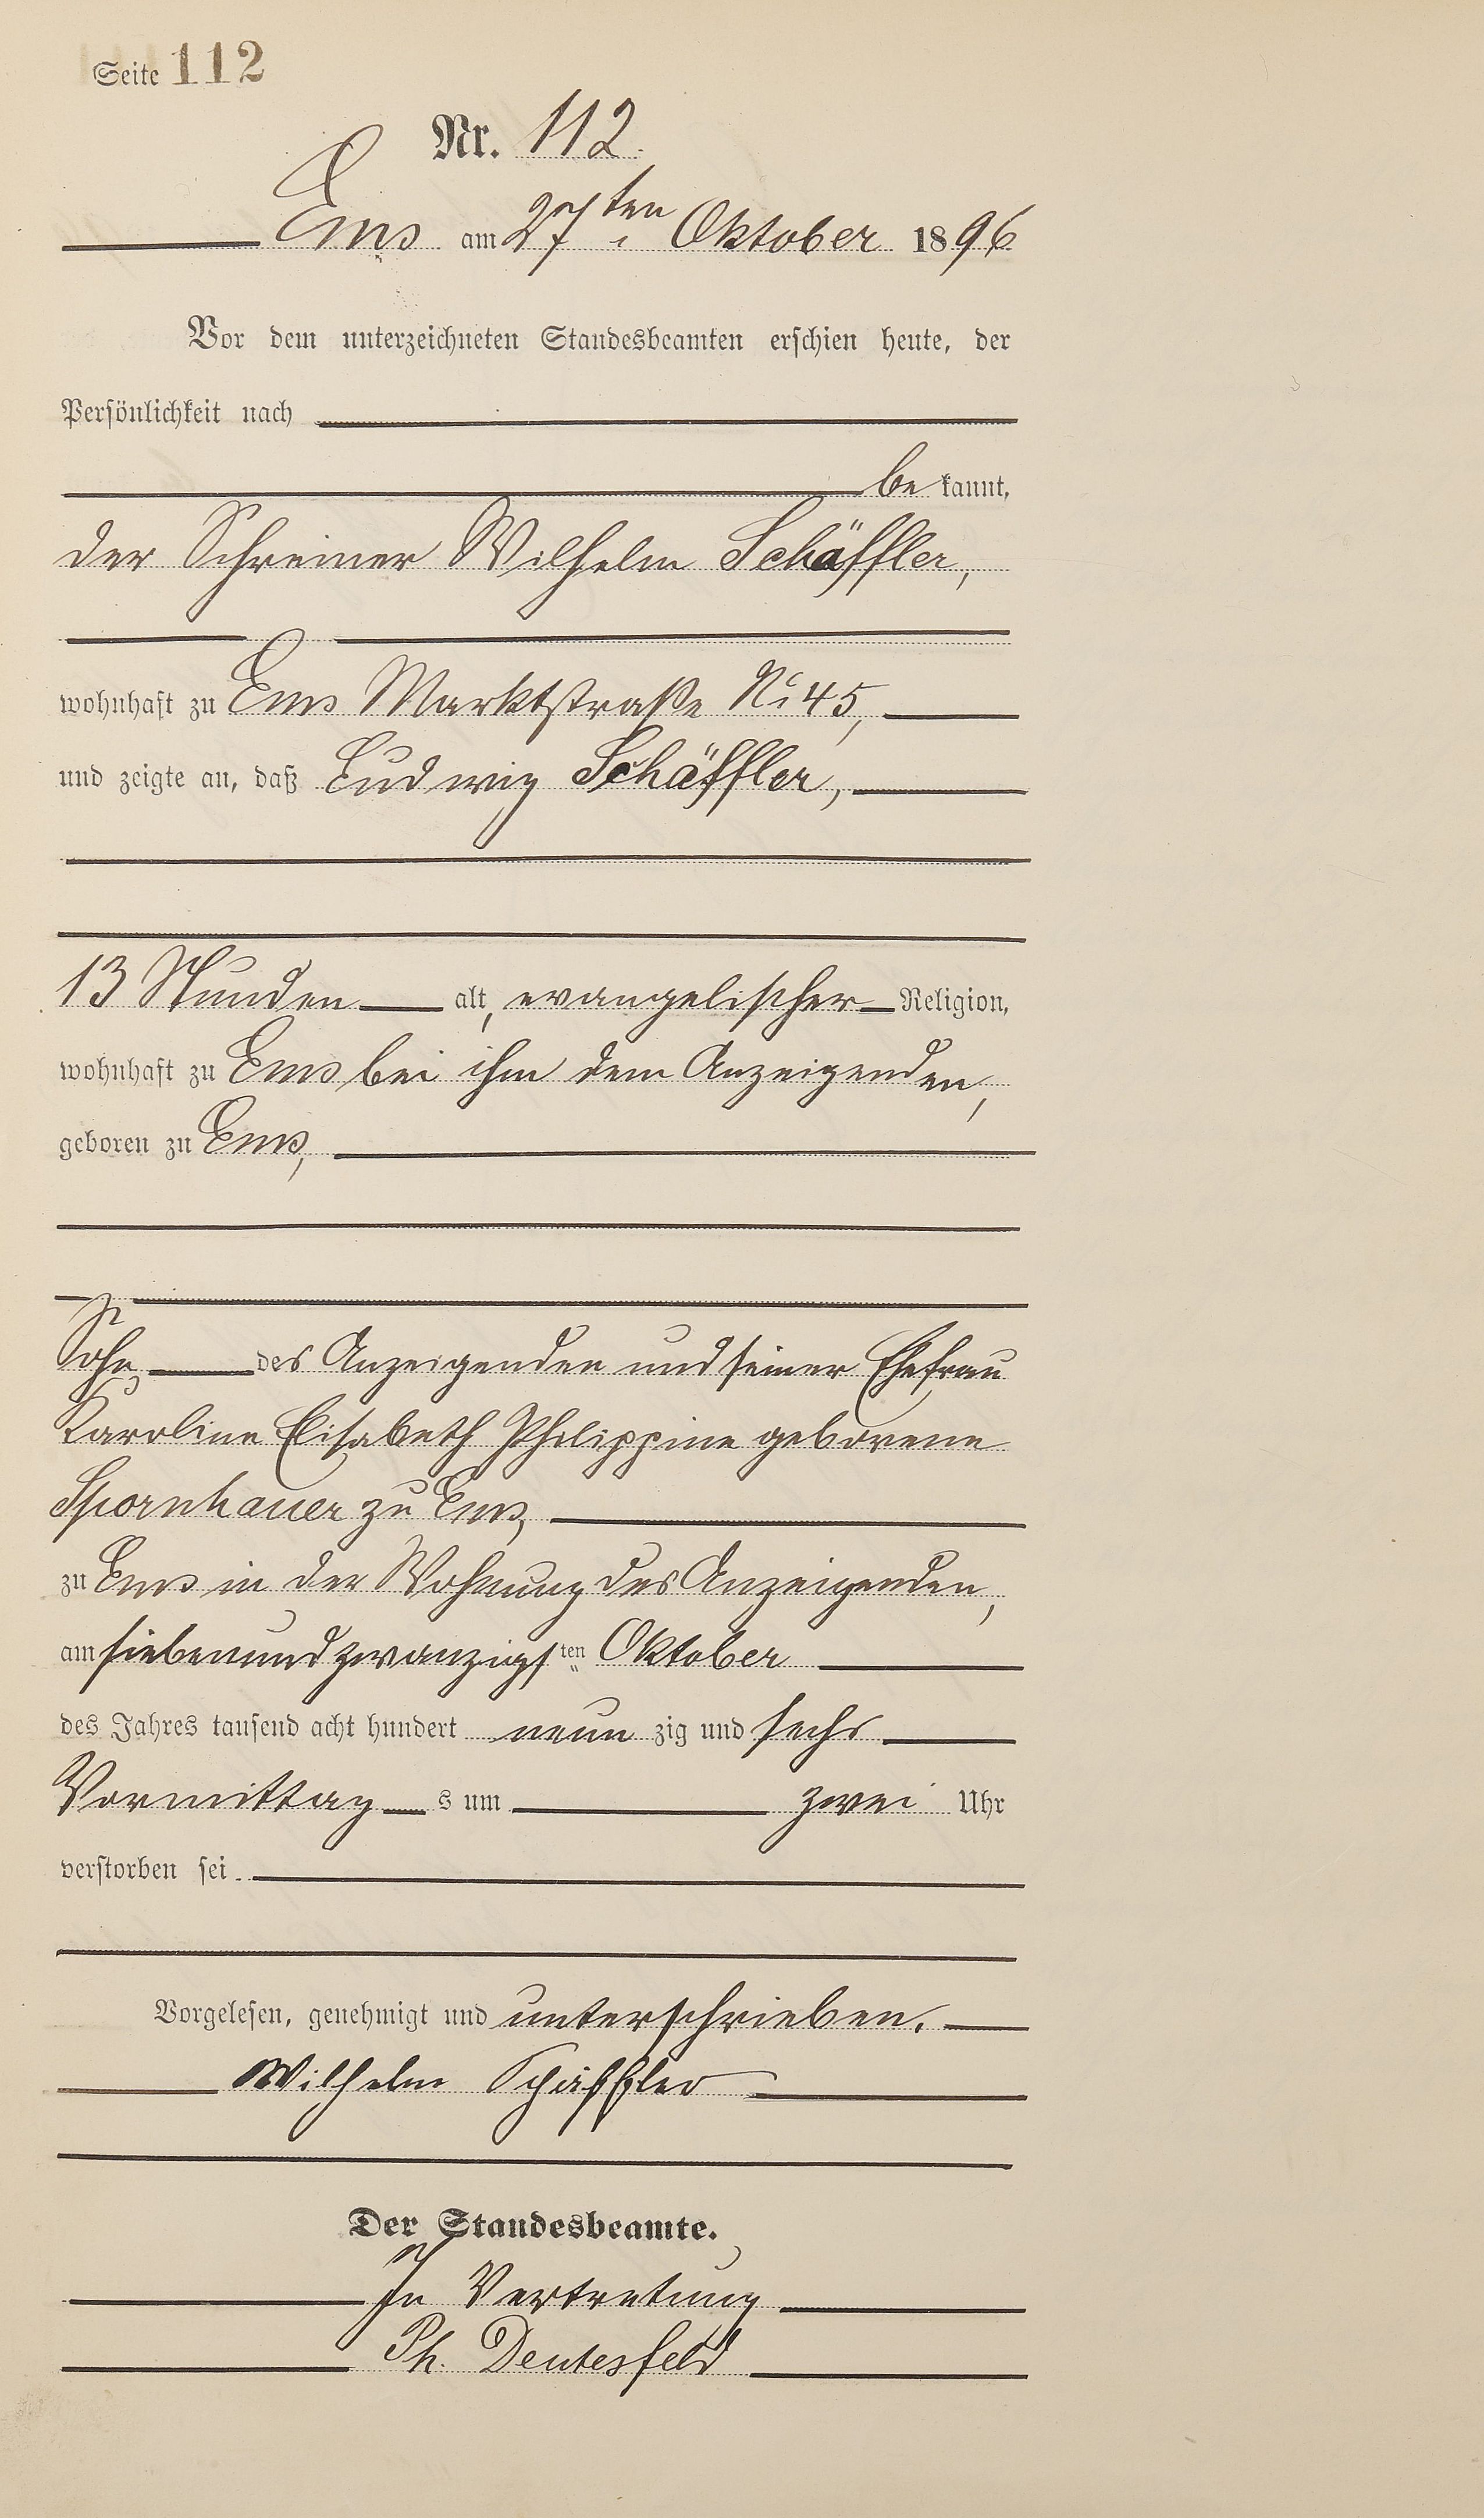 Seite 112
Nr. 112.
Ems am 27ten Oktober 1896
Vor dem unterzeichneten Standesbeamten erschien heute, der
Persönlichkeit nach
be kannt,
der Schreiner Wilhelm Schäffler,
wohnhaft zu Ems Marktstraße No 45,
und zeigte an, daß Ludwig Schäffler,
13 Stunden alt, evangelischer Religion,
wohnhaft zu Ems bei ihm dem Anzeigenden,
geboren zu Ems,
Sohn des Anzeigenden und seiner Ehefrau
Karoline Elisabeth Philippine geborene
Spornhauer zu Ems,
zu Ems in der Wohnung des Anzeigenden,
am siebenundzwanzigsten Oktober
des Jahres tausend acht hundert neun zig und sechs
Vormittag s um zwei Uhr
verstorben sei.
Vorgelesen, genehmigt und unterschrieben.
Wilhelm Schäffler
Der Standesbeamte.
In Vertretung
Ph. Deutesfeld